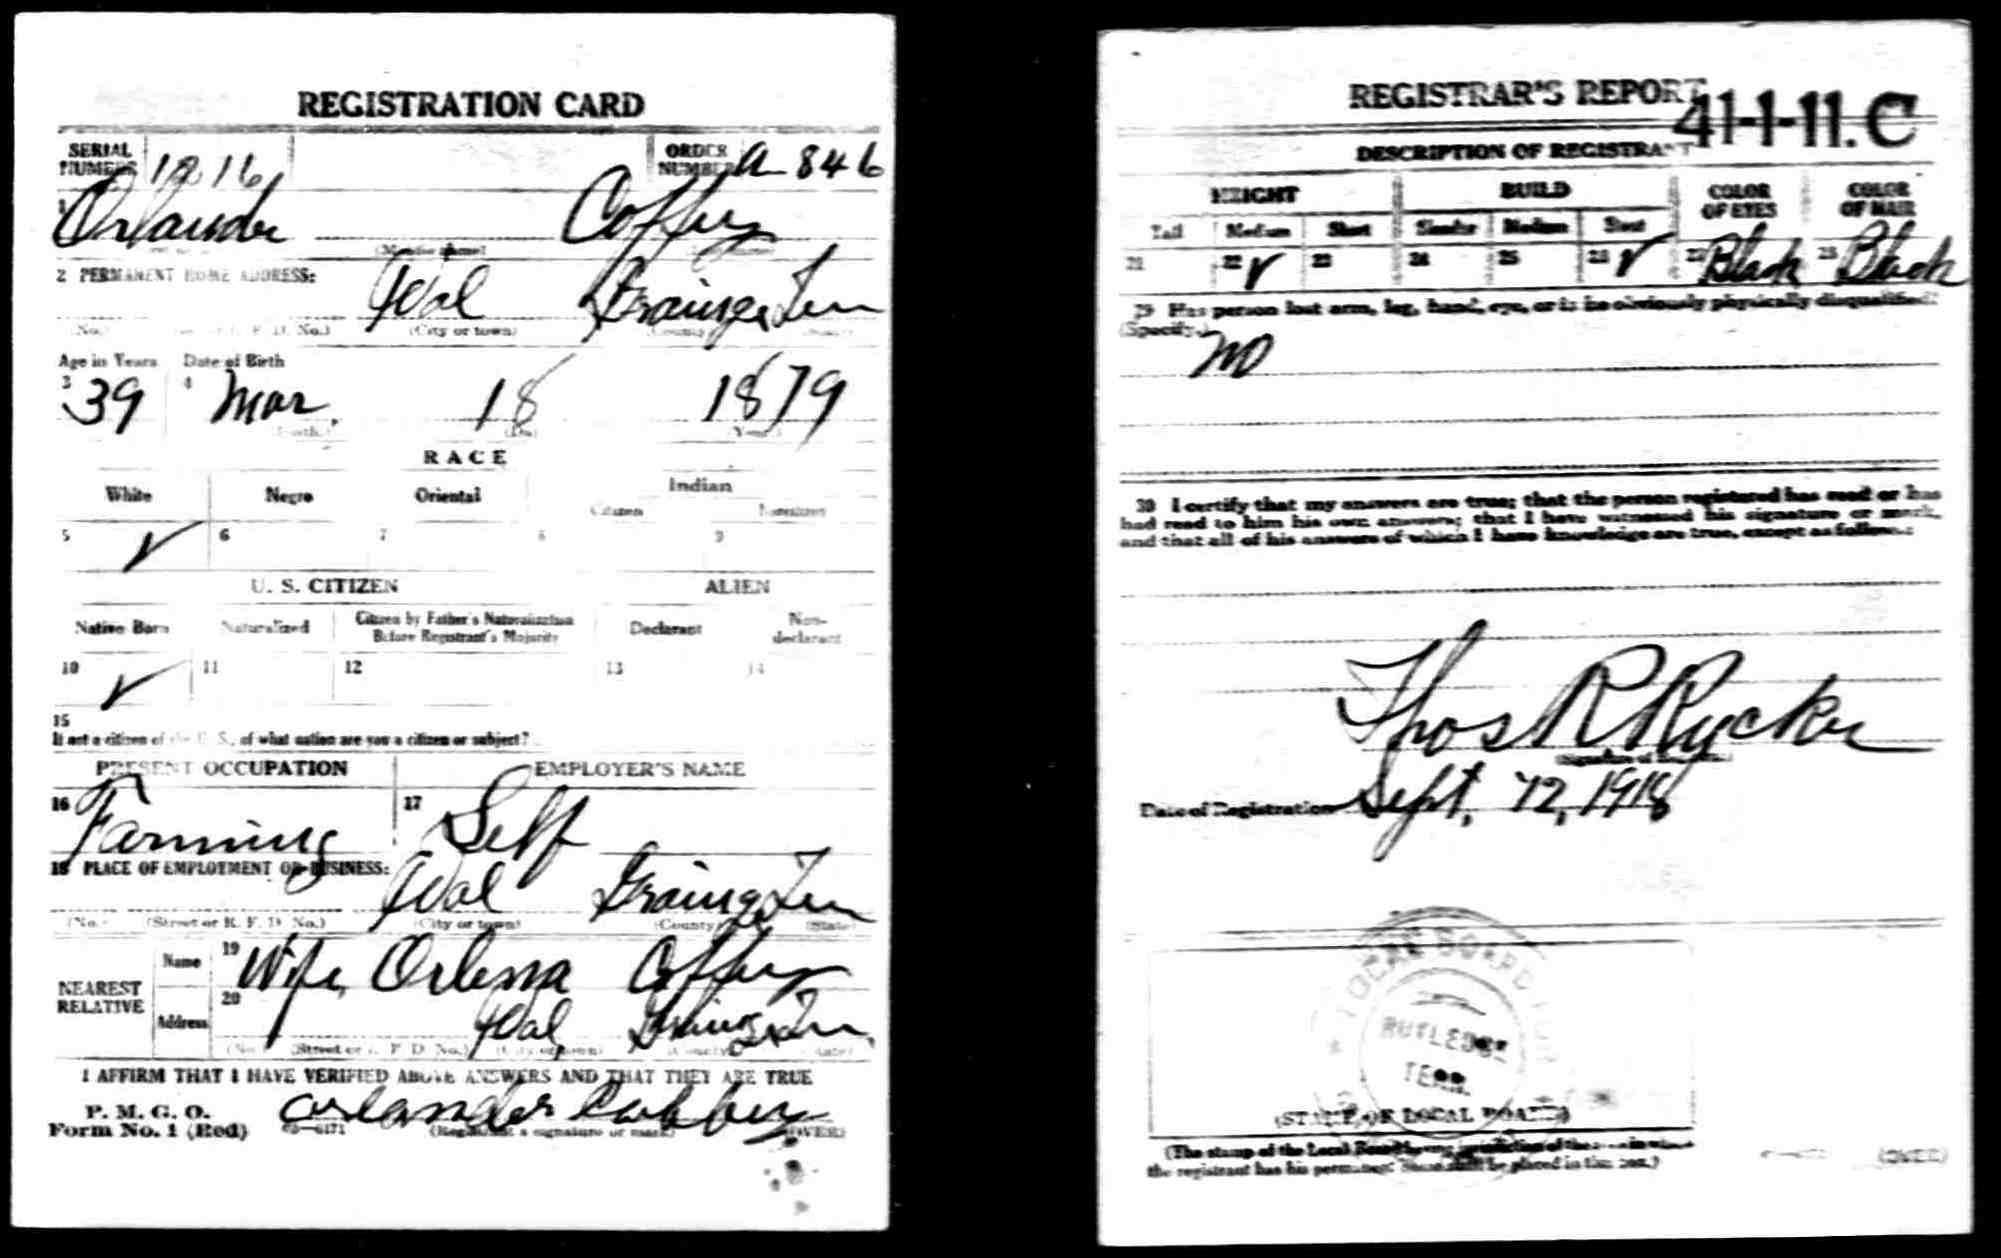 REGISTRATION CARD
SERIAL NUMBER 1216
ORDER NUMBER A 846
1 Orlander Coffey
(Middle name)
2 PERMANENT HOME ADDRESS:
Idol Grainger Ten
(No.) (Street or R. F. D. No.) (City or town) (County) (State)
Age in Years Date of Birth
3 39 4 Mar. 18 1879
(Month.) (Day) (Year.)
RACE
White Negro Oriental Indian
Citizen Noncitizen
5 ✓ 6 7 8 9
U. S. CITIZEN ALIEN
Native Born Naturalized Citizen by Father's Naturalization Before Registrant's Majority Declarant Non-declarant
10 ✓ 11 12 13 14
15
If not a citizen of the U. S., of what nation are you a citizen or subject?
PRESENT OCCUPATION EMPLOYER'S NAME
16 Farming 17 Self
18 PLACE OF EMPLOYMENT OR BUSINESS:
Idol Grainger Ten
(No.) (Street or R. F. D. No.) (City or town) (County) (State)
NEAREST RELATIVE
Name 19 Wife, Orlena Coffey
Address 20 Idol Grainger Ten
(No.) (Street or R. F. D. No.) (City or town) (County) (State)
I AFFIRM THAT I HAVE VERIFIED ABOVE ANSWERS AND THAT THEY ARE TRUE
P. M. G. O.
Form No. 1 (Red)
orlander Cobbey
(Registrant's signature or mark) (OVER)
REGISTRAR'S REPORT
41-1-11. C
DESCRIPTION OF REGISTRANT
HEIGHT BUILD COLOR OF EYES COLOR OF HAIR
Tall Medium Short Slender Medium Stout
21 22 ✓ 23 24 25 26 ✓ 27 Black 28 Black
29 Has person lost arm, leg, hand, eye, or is he obviously physically disqualified?
(Specify.)
no
30 I certify that my answers are true; that the person registered has read or has
had read to him his own answers; that I have witnessed his signature or mark,
and that all of his answers of which I have knowledge are true, except as follows:
Thos R Rucker
(Signature of Registrar)
Date of Registration Sept, 12, 1918
LOCAL BOARD FOR
RUTLEDGE
TENN.
(STAMP OF LOCAL BOARD)
(The stamp of the Local Board having jurisdiction of the area in which
the registrant has his permanent home shall be placed in this box.)
(OVER)